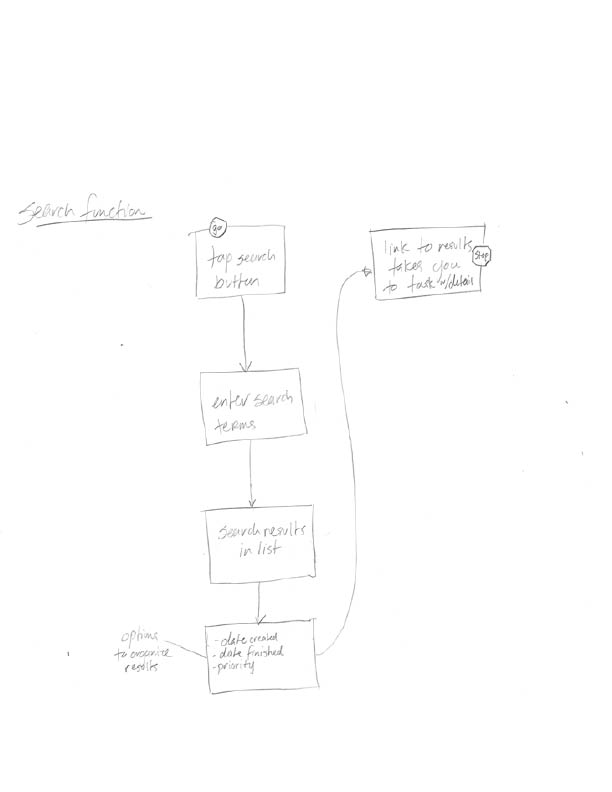 search function
go
tap search
button
enter search
terms
search results
in list
options
to organize
results
- date created
- date finished
- priority
link to results
takes you
to task w/detail
Stop